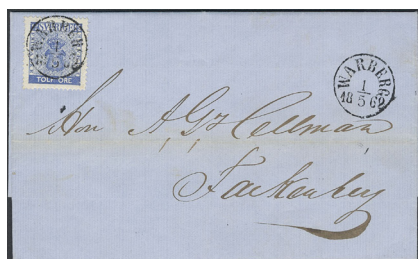 WARBERG
1
TOLF ÖRE
WARBERG
1
18 5 62
Hon A, G, Cellman
Falkenberg